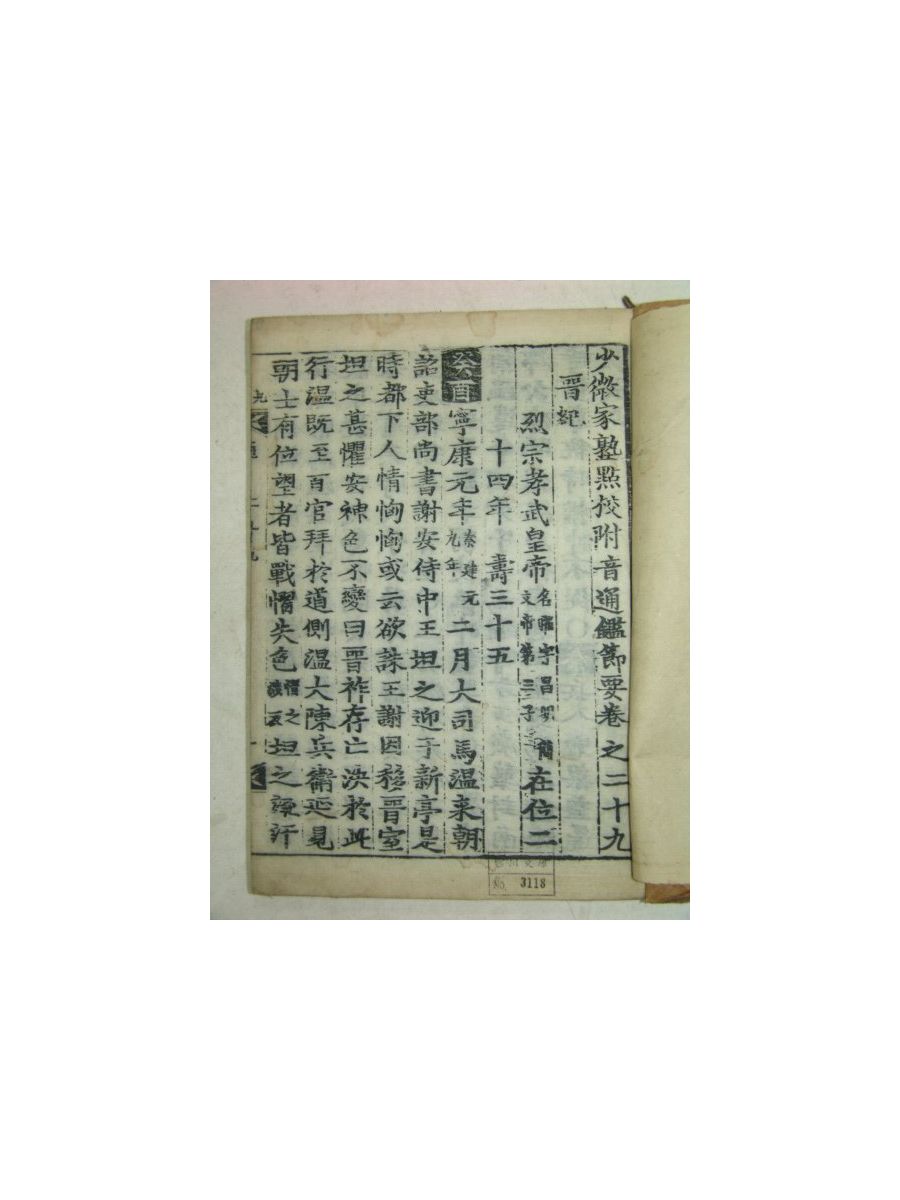 少微家塾點校附音通鑑節要卷之二十九
晋紀
烈宗孝武皇帝名曜字昌明簡文帝第三子在位二
十四年 壽三十五
癸酉寧康元年秦建元九年二月大司馬溫来朝
詔吏部尚書謝安侍中王坦之迎于新亭是
時都下人情恟恟或云欲誅王謝因移晋室
坦之甚懼安神色不變曰晋祚存亡决於此
行溫旣至百官拜於道側溫大陳兵衛延見
朝士有位望者皆戰慴失色慴之涉反坦之流汗
3118